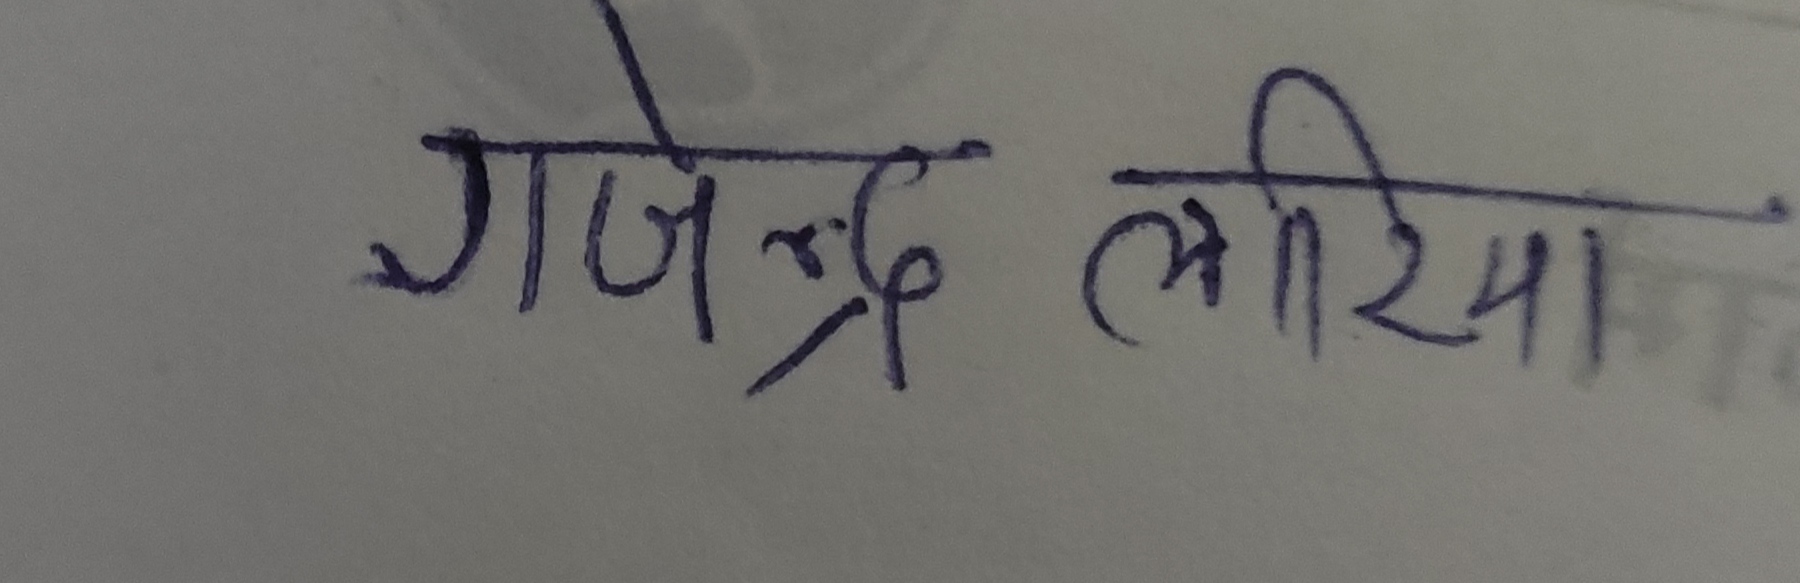 गजेन्द्र लारिया